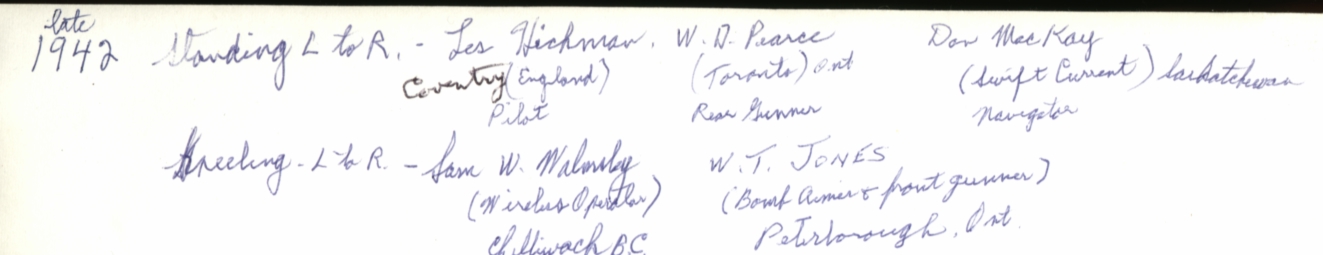 late
1942 Standing L to R. - Les Hickman. W. D. Pearce Don MacKay
Coventry (England) (Toronto) Ont (Swift Current) Saskatchewan
Pilot Rear Gunner Navigator
Kneeling - L to R. - Sam W. Walmsley W. T. JONES
(Wireless Operator) (Bomb Aimer & front gunner)
Chilliwack B.C. Peterborough, Ont.